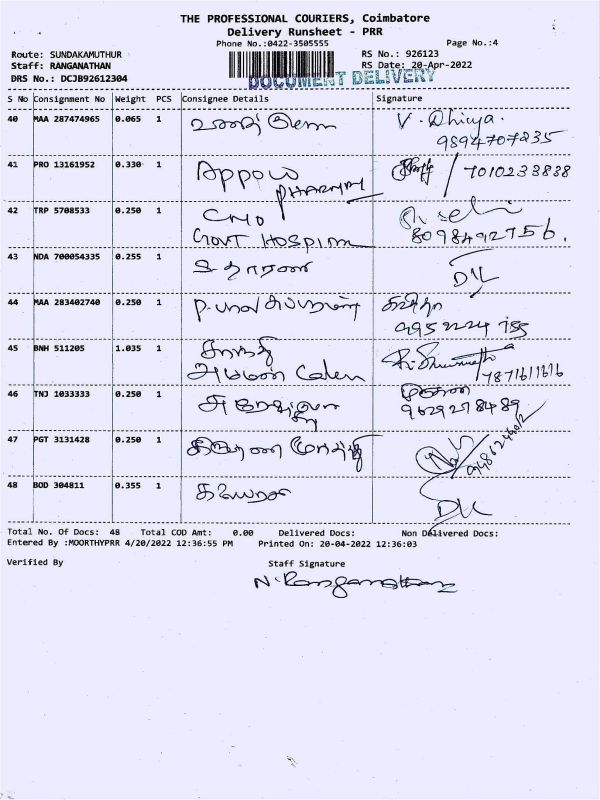 THE PROFESSIONAL COURIERS, Coimbatore
Delivery Runsheet - PRR
Phone No.:0422-3505555
Page No.:4
Route: SUNDAKAMUTHUR
RS No.: 926123
Staff: RANGANATHAN
RS Date: 20-Apr-2022
DRS No.: DCJB92612304
DOCUMENT DELIVERY
S No Consignment No Weight PCS Consignee Details Signature
40 MAA 287474965 0.065 1 V. Dhivya.
9894707235
41 PRO 13161952 0.330 1 Appolo 7010233838
PHARMA
42 TRP 5708533 0.250 1 CMO
GOVT HOSPITAL 8098492756.
43 NDA 700054335 0.255 1 உதாரணி
44 MAA 283402740 0.250 1 கவிதா
45 BNH 511205 1.035 1 சாந்தி
அம்மன் 7871611616
46 TNJ 1033333 0.250 1
9629278489
47 PGT 3131428 0.250 1
48 BOD 304811 0.355 1
Total No. Of Docs: 48 Total COD Amt: 0.00 Delivered Docs: Non Delivered Docs:
Entered By :MOORTHYPRR 4/20/2022 12:36:55 PM Printed On: 20-04-2022 12:36:03
Verified By Staff Signature
N. Ranganathan